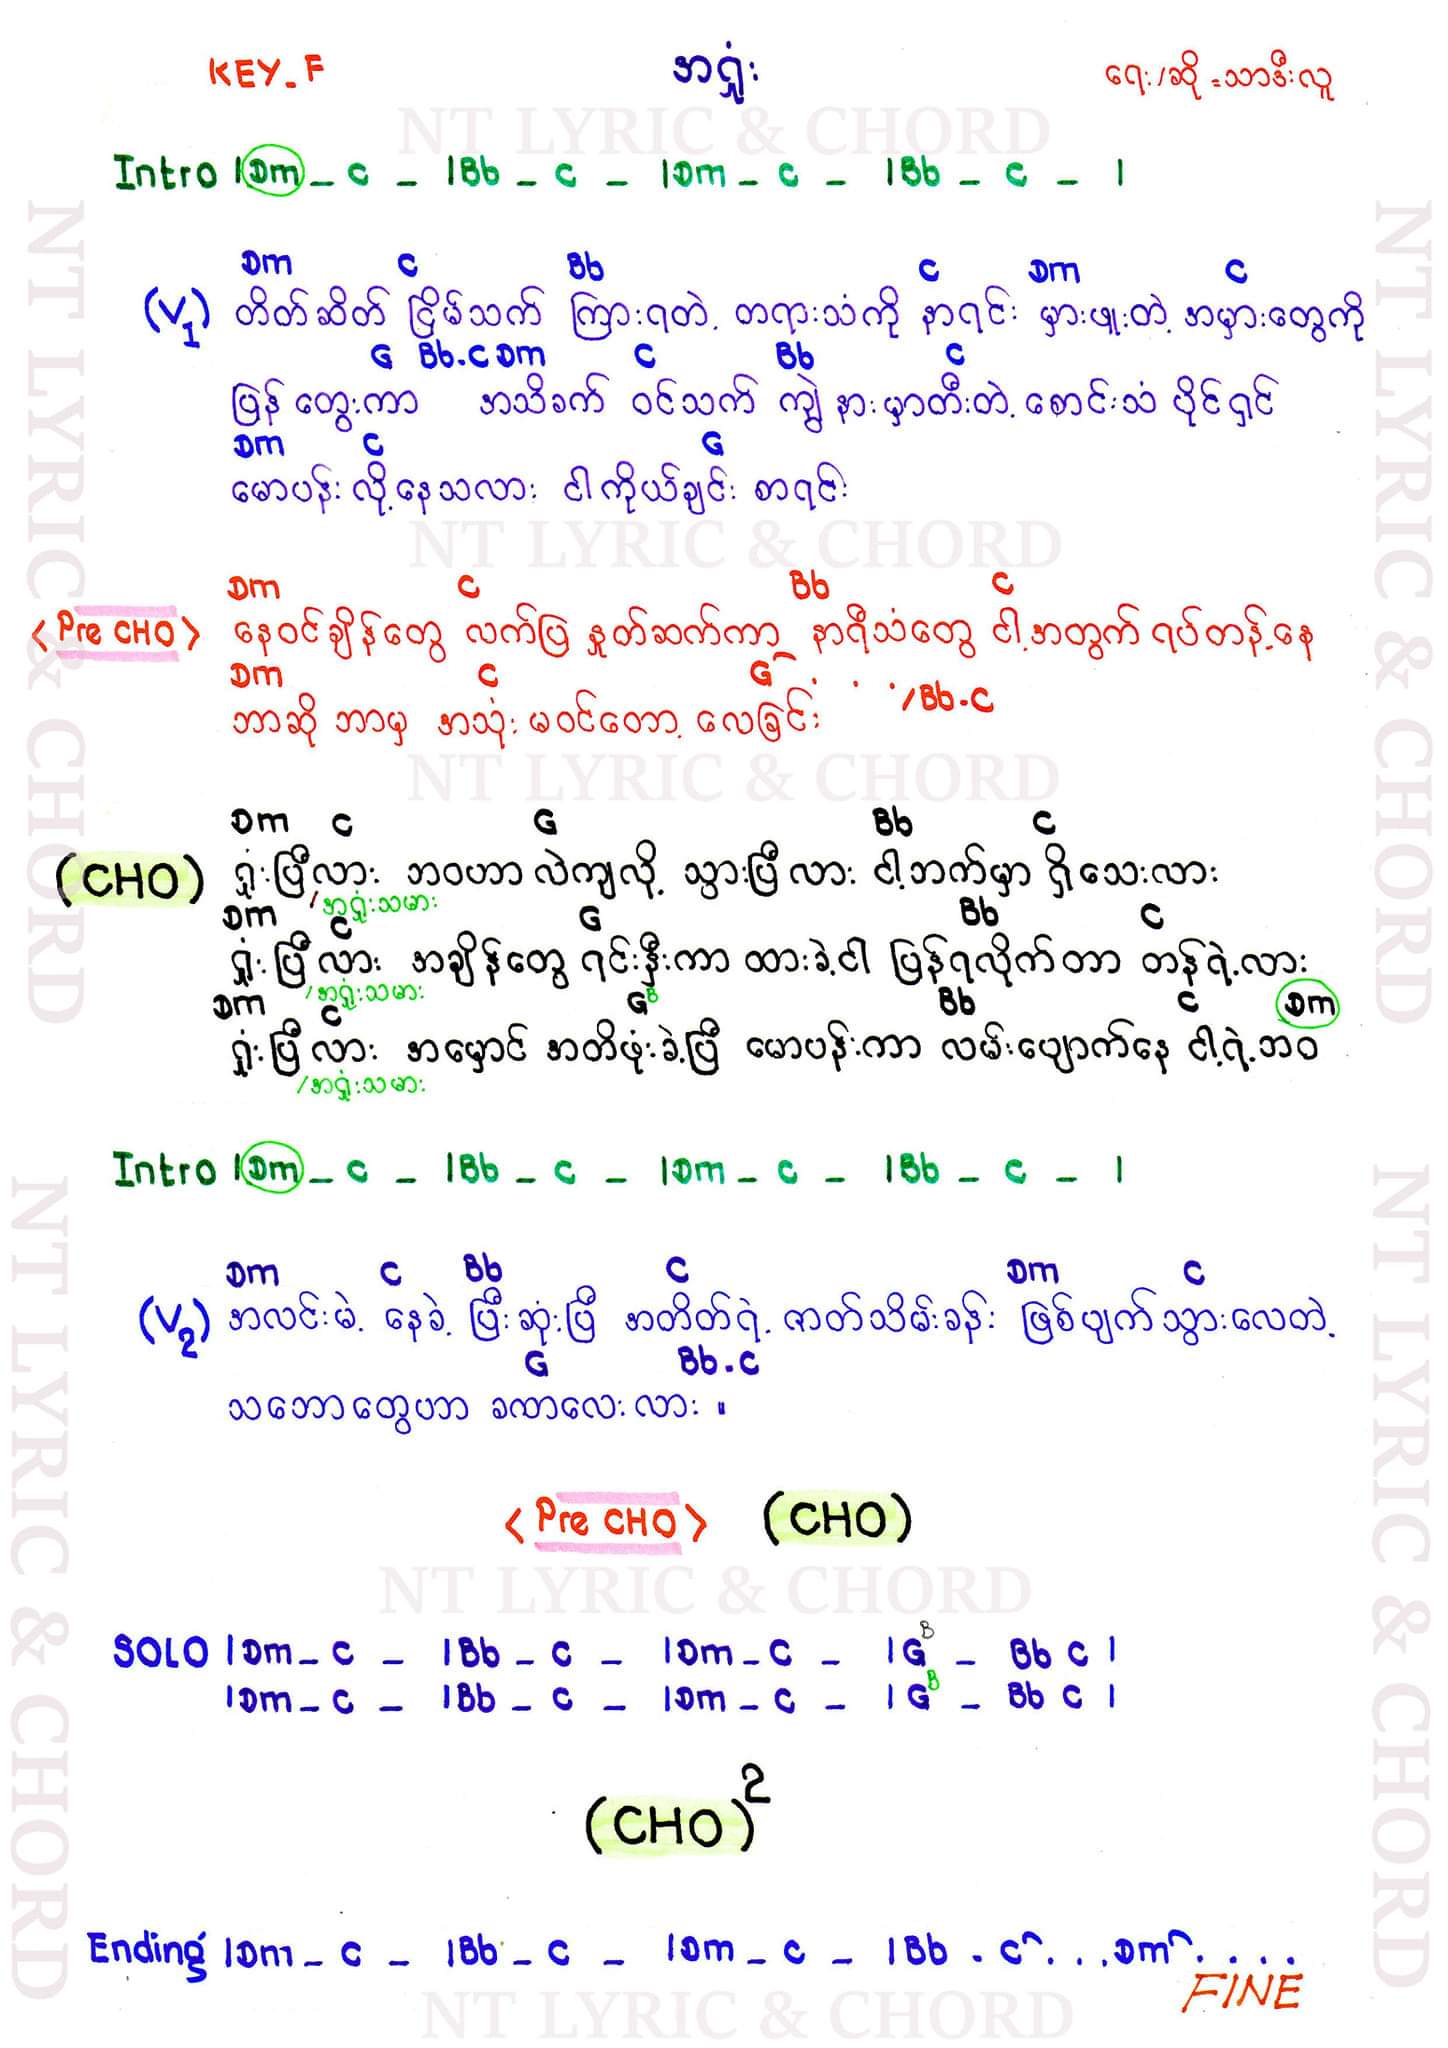 KEY-F
အရှုံး
ရေး/ဆို = သာဒီးလူ
NT LYRIC & CHORD
Intro |Dm - C - |Bb - C - |Dm - C - |Bb - C - |
Dm C Bb C Dm C
(V1) တိတ်ဆိတ် ငြိမ်သက် ကြားရတဲ့ တရားသံကို နာရင်း မှားဖူးတဲ့ အမှားတွေကို
G Bb.C Dm C Bb C
ပြန် တွေးကာ အသိခက် ဝင်သက် ကျွဲ နားမှာတီးတဲ့ စောင်းသံ ပိုင်ရှင်
Dm C G
မောပန်း လို့နေသလား ငါကိုယ်ချင်း စာရင်း
NT LYRIC & CHORD
Dm C Bb C
<Pre CHO> နေဝင်ချိန်တွေ လက်ပြ နှုတ်ဆက်ကာ နာရီသံတွေ ငါ့အတွက် ရပ်တန့်နေ
Dm C G . . . /Bb.C
ဘာဆို ဘာမှ အသုံး မဝင်တော့ လေခြင်း
NT LYRIC & CHORD
Dm C G Bb C
(CHO) ရှုံးပြီလား ဘဝဟာ လဲကျလို့ သွားပြီ လား ငါ့ဘက်မှာ ရှိသေးလား
/အရှုံးသမား
Dm C G Bb C
ရှုံးပြီလား အချိန်တွေ ရင်းနှီးကာ ထားခဲ့ငါ ပြန်ရလိုက်တာ တန်ရဲ့လား
/အရှုံးသမား
Dm C G B Bb C Dm
ရှုံးပြီလား အမှောင် အတိဖုံးခဲ့ပြီ မောပန်းကာ လမ်းပျောက်နေ ငါ့ရဲ့ဘဝ
/အရှုံးသမား
Intro |Dm - C - |Bb - C - |Dm - C - |Bb - C - |
Dm C Bb C Dm C
(V2) အလင်းမဲ့ နေခဲ့ ပြီးဆုံးပြီ အတိတ်ရဲ့ ဇာတ်သိမ်းခန်း ဖြစ်ပျက်သွားလေတဲ့
G Bb.C
သဘောတွေဟာ ခဏလေးလား ။
<Pre CHO> (CHO)
NT LYRIC & CHORD
SOLO |Dm - C - |Bb - C - |Dm - C - |G B - Bb C |
|Dm - C - |Bb - C - |Dm - C - |G B - Bb C |
(CHO)2
Ending |Dm - C - |Bb - C - |Dm - C - |Bb . C^ . . . Dm^ . . . .
FINE
NT LYRIC & CHORD
NT LYRIC & CHORD
NT LYRIC & CHORD
NT LYRIC & CHORD
NT LYRIC & CHORD